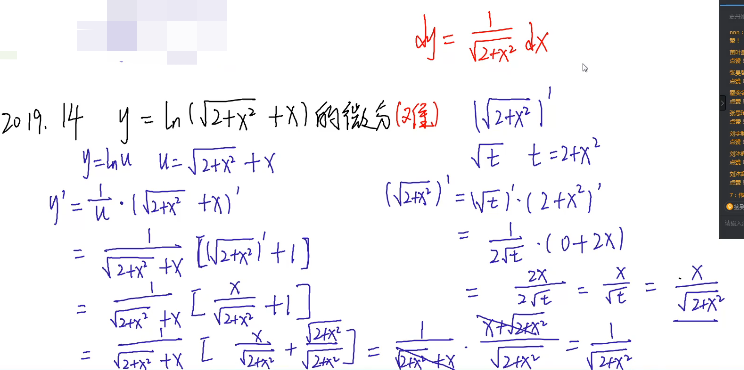 dy = 1/√(2+x²) dx
2019.14 y = ln(√(2+x²) + x) 的微分(又催)
y=lnu u=√(2+x²) + x
y' = 1/u · (√(2+x²) + x)'
= 1/(√(2+x²) + x) [(√(2+x²))' + 1]
= 1/(√(2+x²) + x) [x/√(2+x²) + 1]
= 1/(√(2+x²) + x) [x/√(2+x²) + √(2+x²)/√(2+x²)] = 1/(√(2+x²) + x) · (x+√(2+x²))/√(2+x²) = 1/√(2+x²)
(√(2+x²))'
√t t=2+x²
(√(2+x²))' = (√t)' · (2+x²)'
= 1/(2√t) · (0+2x)
= 2x/(2√t) = x/√t = x/√(2+x²)